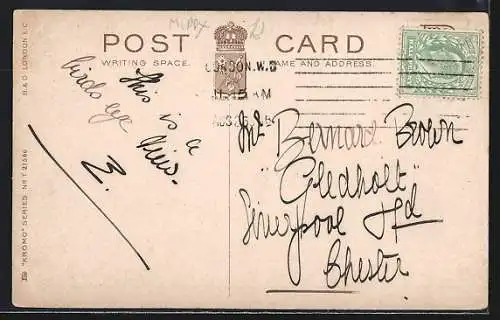 POST CARD
WRITING SPACE. NAME AND ADDRESS.
B & D LONDON E.C
"KROMO" SERIES No T 21586
LONDON. W.D
11.15 AM
AUG
This is a
birds eye
View.
Mr Bernard Brown
"Gledholt"
Liverpool Rd
Chester